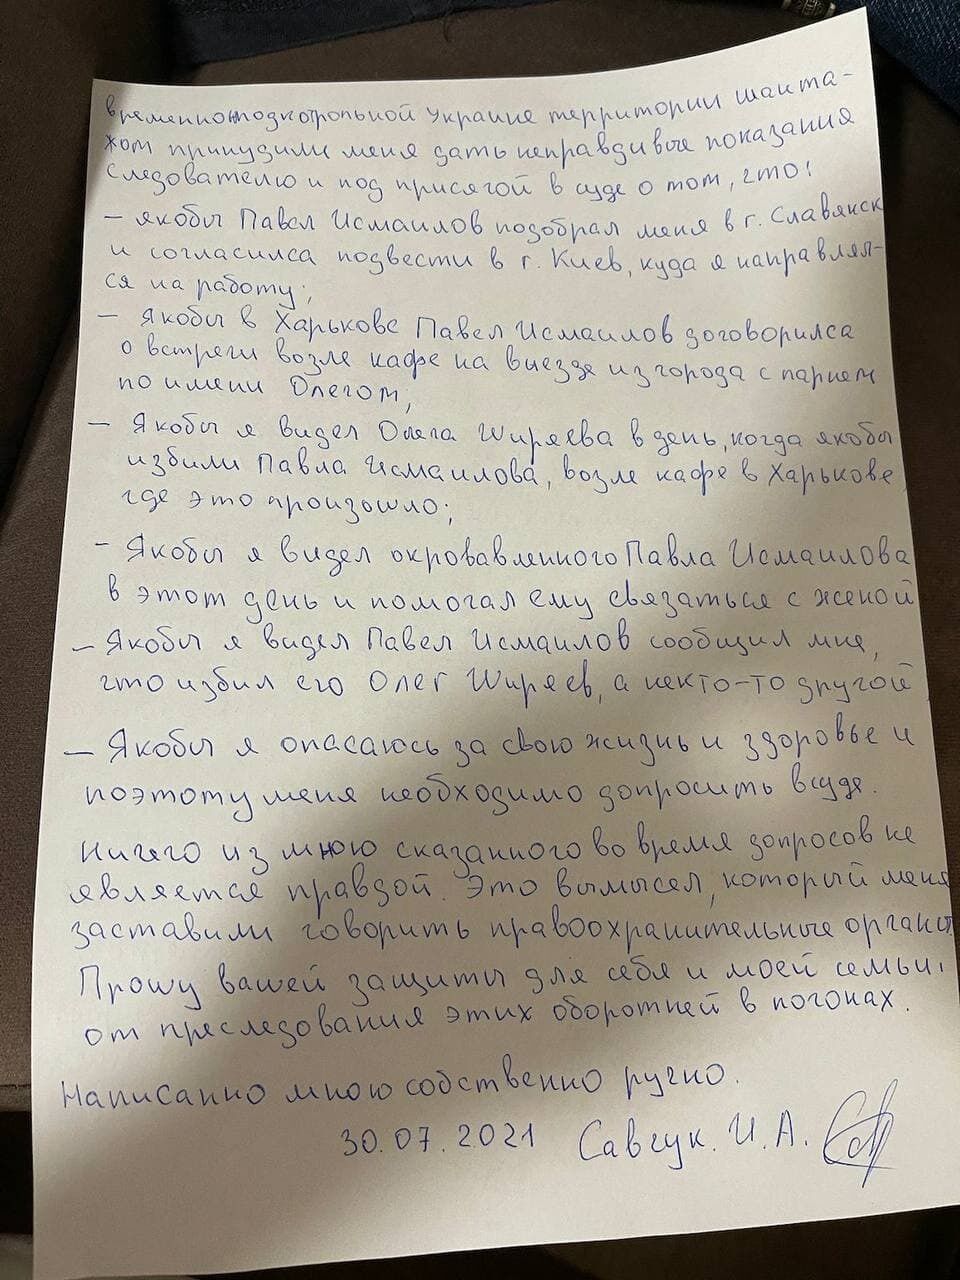 временноподкотрольной Украине территории шанта-
жом принудили меня дать неправдивые показания
следователю и под присягой в суде о том, что:
– якобы Павел Исмаилов подобрал меня в г. Славянск
и согласился подвести в г. Киев, куда я направлял-
ся на работу;
– Якобы в Харькове Павел Исмаилов договорился
о встречи возле кафе на выезде из города с парнем
по имени Олегом,
– Якобы я видел Олега Ширяева в день, когда якобы
избили Павла Исмаилова, возле кафе в Харькове,
где это произошло;
– Якобы я видел окровавленного Павла Исмаилова
в этот день и помогал ему связаться с женой
– Якобы я видел Павел Исмаилов сообщил мне,
что избил его Олег Ширяев, а некто-то другой,
– Якобы я опасаюсь за свою жизнь и здоровье и
поэтому меня необходимо допросить в суде.
Ничего из мною сказанного во время допросов не
является правдой. Это вымысел, который меня
заставили говорить правоохранительные органы
Прошу вашей защиты для себя и моей семьи,
от преследования этих оборотней в погонах.
Написанно мною собственно ручно.
30.07.2021 Савчук. И.А.